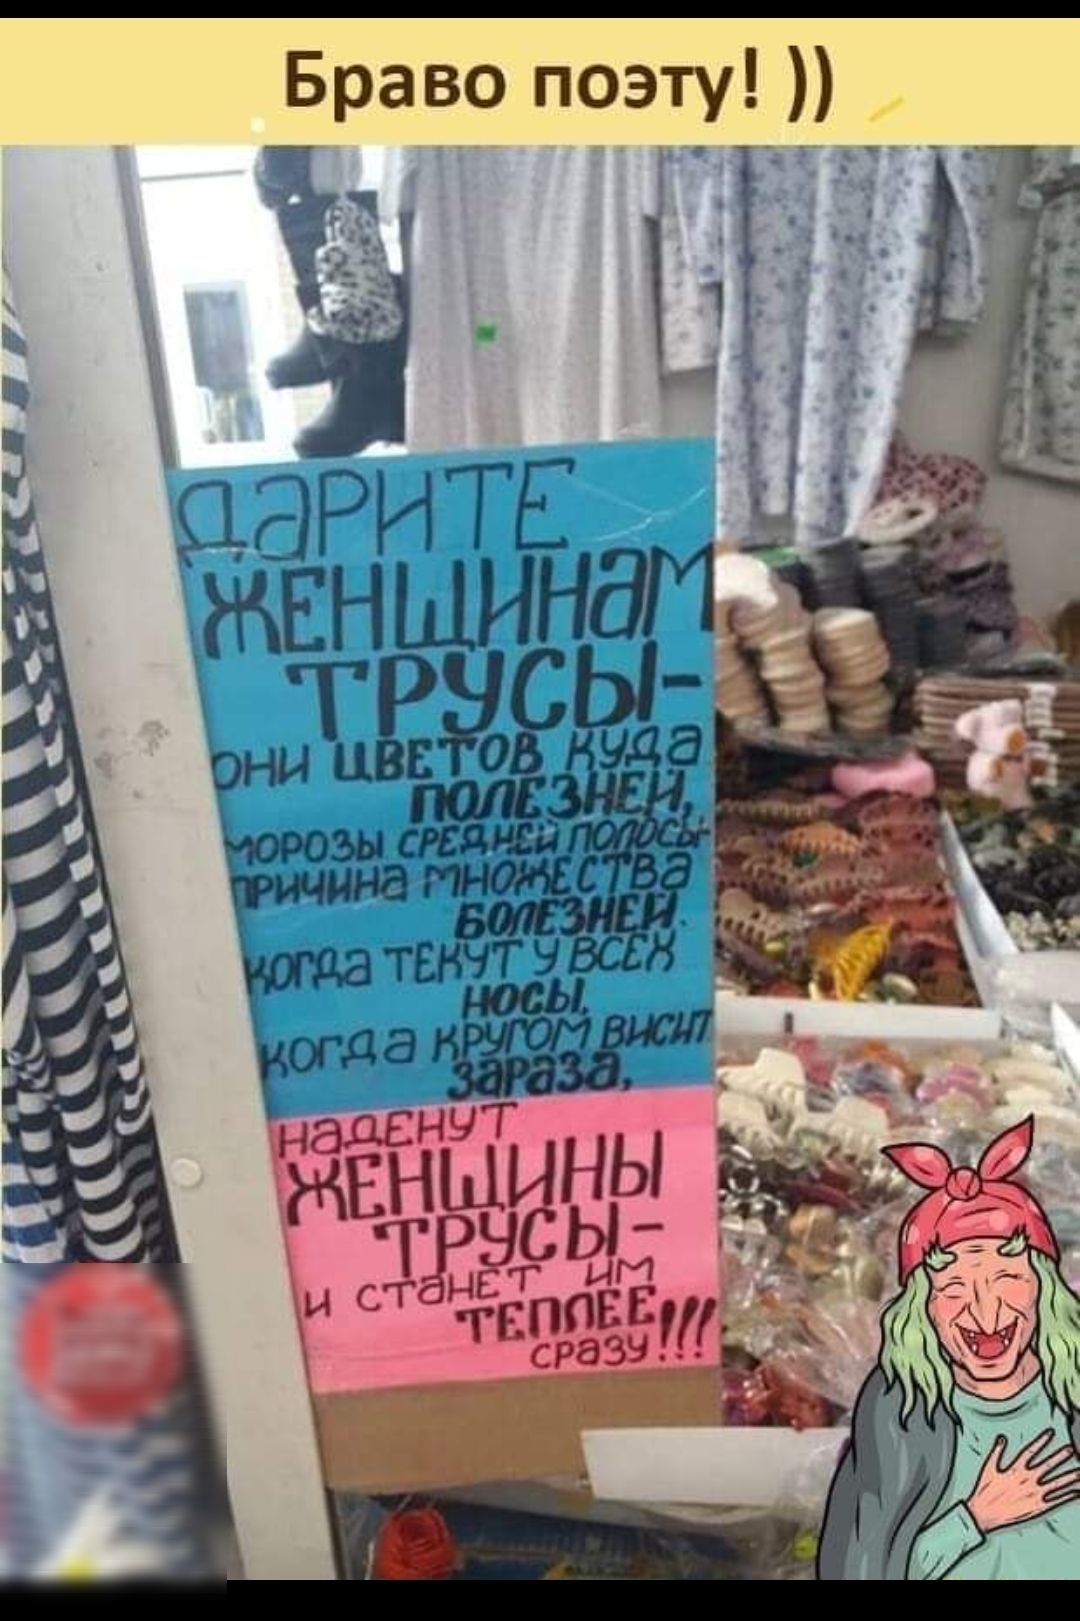 Браво поэту! ))
ДАРИТЕ
ЖЕНЩИНАМ
ТРУСЫ-
ОНИ ЦВЕТОВ КУДА
ПОЛЕЗНЕЙ,
МОРОЗЫ СРЕДНЕЙ ПОЛОСЫ-
ПРИЧИНА МНОЖЕСТВА
БОЛЕЗНЕЙ.
КОГДА ТЕКУТ У ВСЕХ
НОСЫ,
КОГДА КРУГОМ ВИСИТ
ЗАРАЗА,
НАДЕНУТ
ЖЕНЩИНЫ
ТРУСЫ-
И СТАНЕТ ИМ
ТЕПЛЕЕ
СРАЗУ!!!